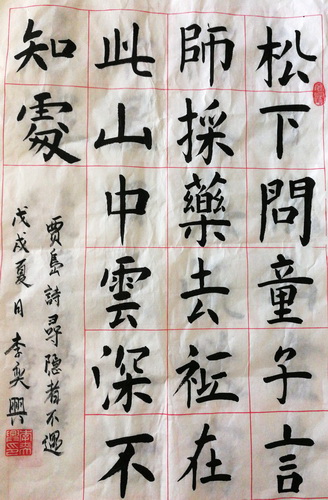 松下問童子言
師採藥去祗在
此山中雲深不
知處
賈島詩尋隐者不遇
戊戌夏日李奕興